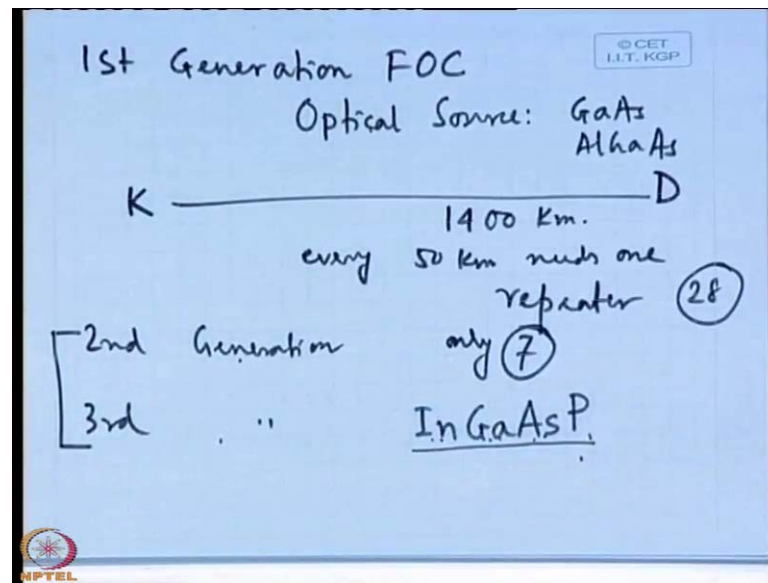 1st Generation FOC
© CET
I.I.T. KGP
Optical Source: GaAs
AlGaAs
K D
1400 Km.
every 50 km needs one
repeater 28
2nd Generation only 7
3rd " InGaAsP.
NPTEL